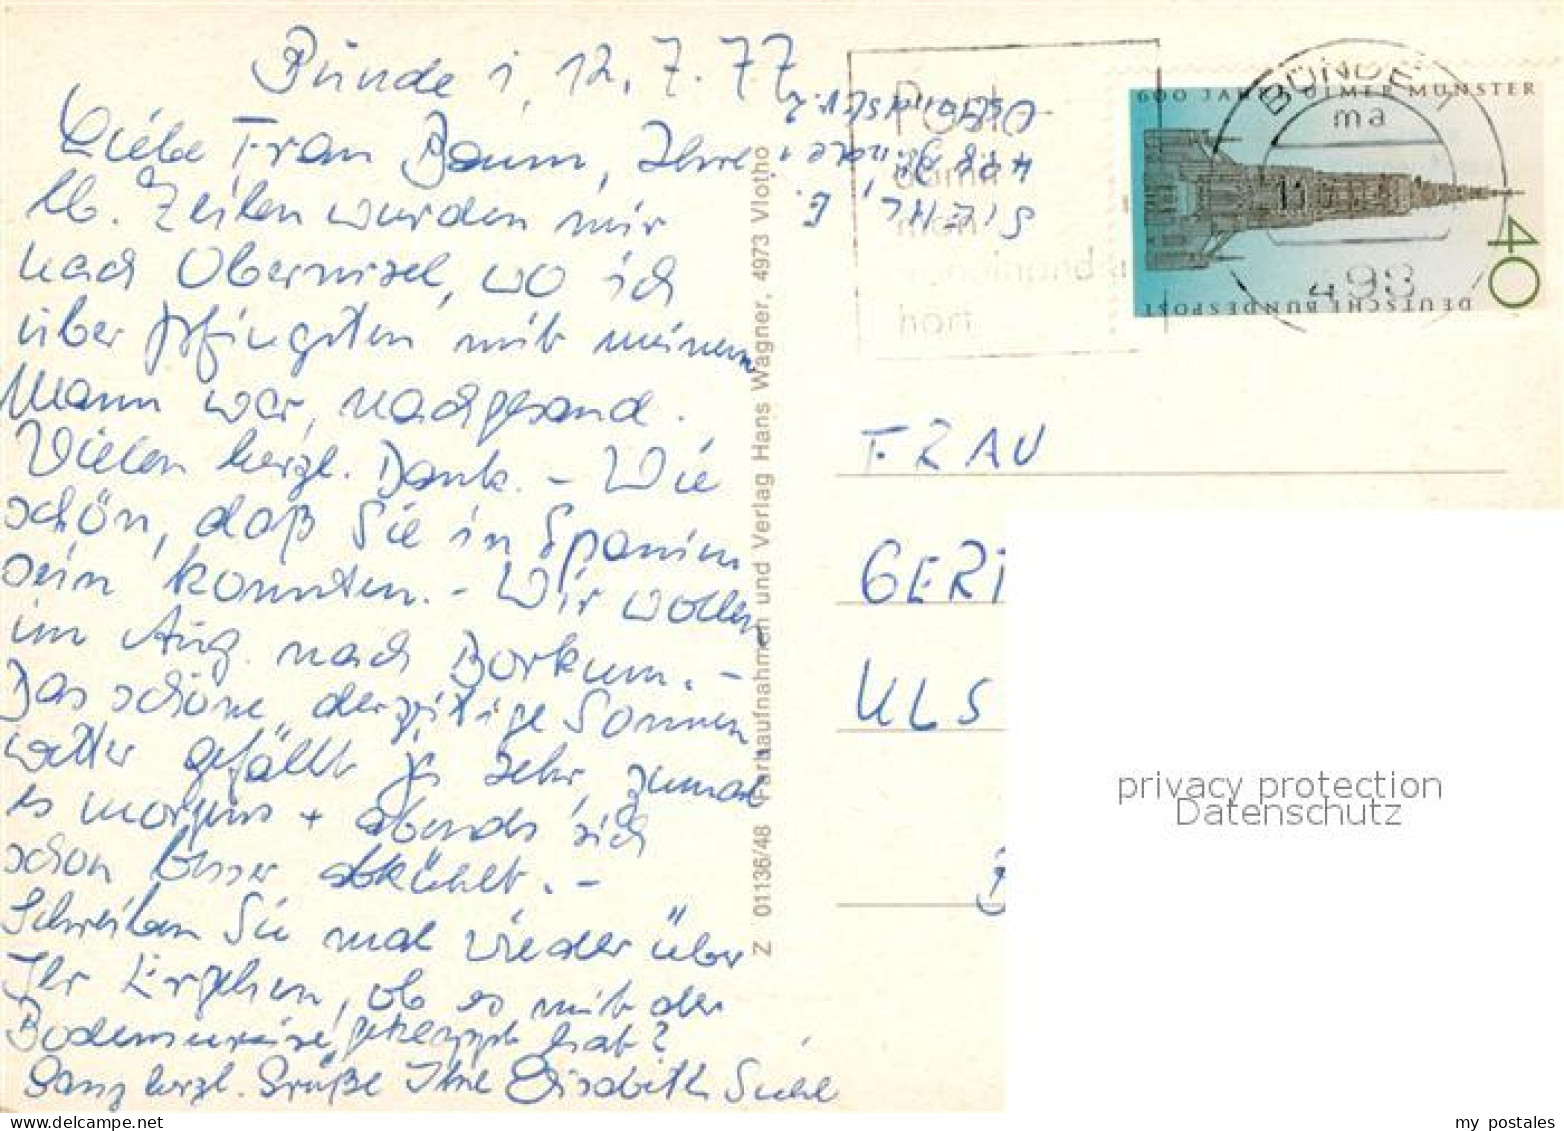 Bünde 1, 12.7.77
Liebe Frau Baum, Ihre
lb. Zeilen wurden mir
nach Obernisel, wo ich
über Pfingsten mit meinem
Mann war, nachgesand.
Vielen herzl. Dank. – Wie
schön, daß Sie in Spanien
sein konnten. – Wir wollen
im Aug. nach Borkum. –
Das schöne derzeitige Sonnen
wetter gefällt ja sehr, zumal
es morgens + abends sich
schon besser abkühlt. –
Schreiben Sie mal wieder über
Ihr Ergehen, ob es mit der
Bodenseereise geklappt hat?
Ganz herzl. Grüße Ihre Elisabeth Siehl
SIEHL, E.
498 Bünde 1
Z 01136/48 Farbaufnahmen und Verlag Hans Wagner, 4973 Vlotho
600 JAHRE ULMER MÜNSTER
DEUTSCHE BUNDESPOST
40
BÜNDE 1
ma
498
FRAU
GERT
ULS
privacy protection
Datenschutz
my postales